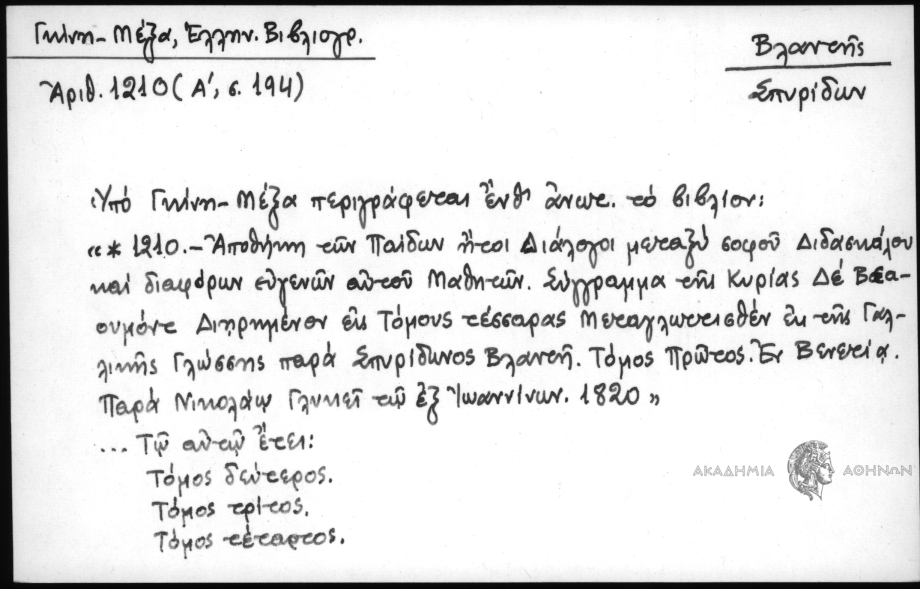 Γκίνη-Μέξα, Ἑλλην. Βιβλιογρ.
Ἀριθ. 1210 (Α', σ. 194)
Βλαντῆς
Σπυρίδων
Ὑπό Γκίνη-Μέξα περιγράφεται ἔνθ' ἄνωτ. τό βιβλίον:
«* 1210.- Ἀποθήκη τῶν Παίδων ἤτοι Διάλογοι μεταξύ σοφοῦ Διδασκάλου
καί διαφόρων εὐγενῶν αὐτοῦ Μαθητῶν. Σύγγραμμα τῆς Κυρίας Δέ Βεα-
ουμόντ Διῃρημένον εἰς Τόμους τέσσαρας Μεταγλωττισθέν ἐκ τῆς Γαλ-
λικῆς Γλώσσης παρά Σπυρίδωνος Βλαντῆ. Τόμος Πρῶτος. Ἐν Βενετίᾳ.
Παρά Νικολάῳ Γλυκεῖ τῷ ἐξ Ἰωαννίνων. 1820»
... Τῷ αὐτῷ ἔτει:
Τόμος δεύτερος.
Τόμος τρίτος.
Τόμος τέταρτος.
ΑΚΑΔΗΜΙΑ ΑΘΗΝΩΝ